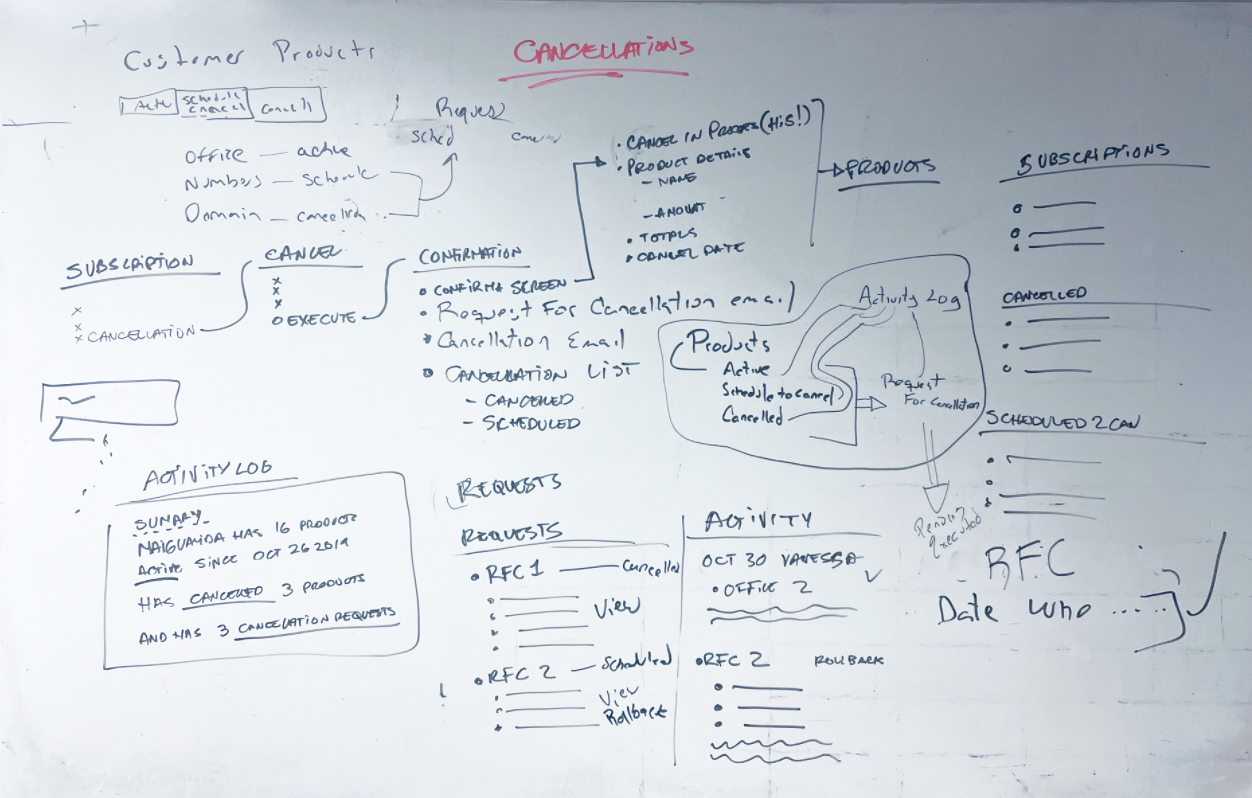 CANCELLATIONS
Customer Products
Schedule
Cancell
Reques
Sched
Office — active
Numbers — Schedule
Domain —
• CANCEL IN PROCES (HIS!)
• PRODUCT DETAILS
- NAME
- AMOUNT
• TOTALS
• CANCEL DATE
PRODUCTS
SUBSCRIPTIONS
SUBSCRIPTION
x
x
x CANCELLATION
CANCEL
x
x
x
EXECUTE
CONFIRMATION
• CONFIRMA SCREEN
• Request For Cancellation email
• Cancellation Email
• CANCELLATION LIST
- CANCELLED
- SCHEDULED
Activity Log
Products
Active
Schedule to cancel
Cancelled
Request
For Cancellation
Pending
Executed
CANCELLED
SCHEDULED 2 CAN
ACTIVITY LOG
SUMARY
NAIGUANDA HAS 16 PRODUCTS
ACTIVE SINCE OCT 26 2019
HAS CANCELLED 3 PRODUCTS
AND HAS 3 CANCELLATION REQUESTS
REQUESTS
REQUESTS
• RFC 1 — Cancelled
View
• RFC 2 — Scheduled
View
Rollback
ACTIVITY
OCT 30 VANESSA
• OFFICE 2
• RFC 2 ROLLBACK
RFC
Date who .....